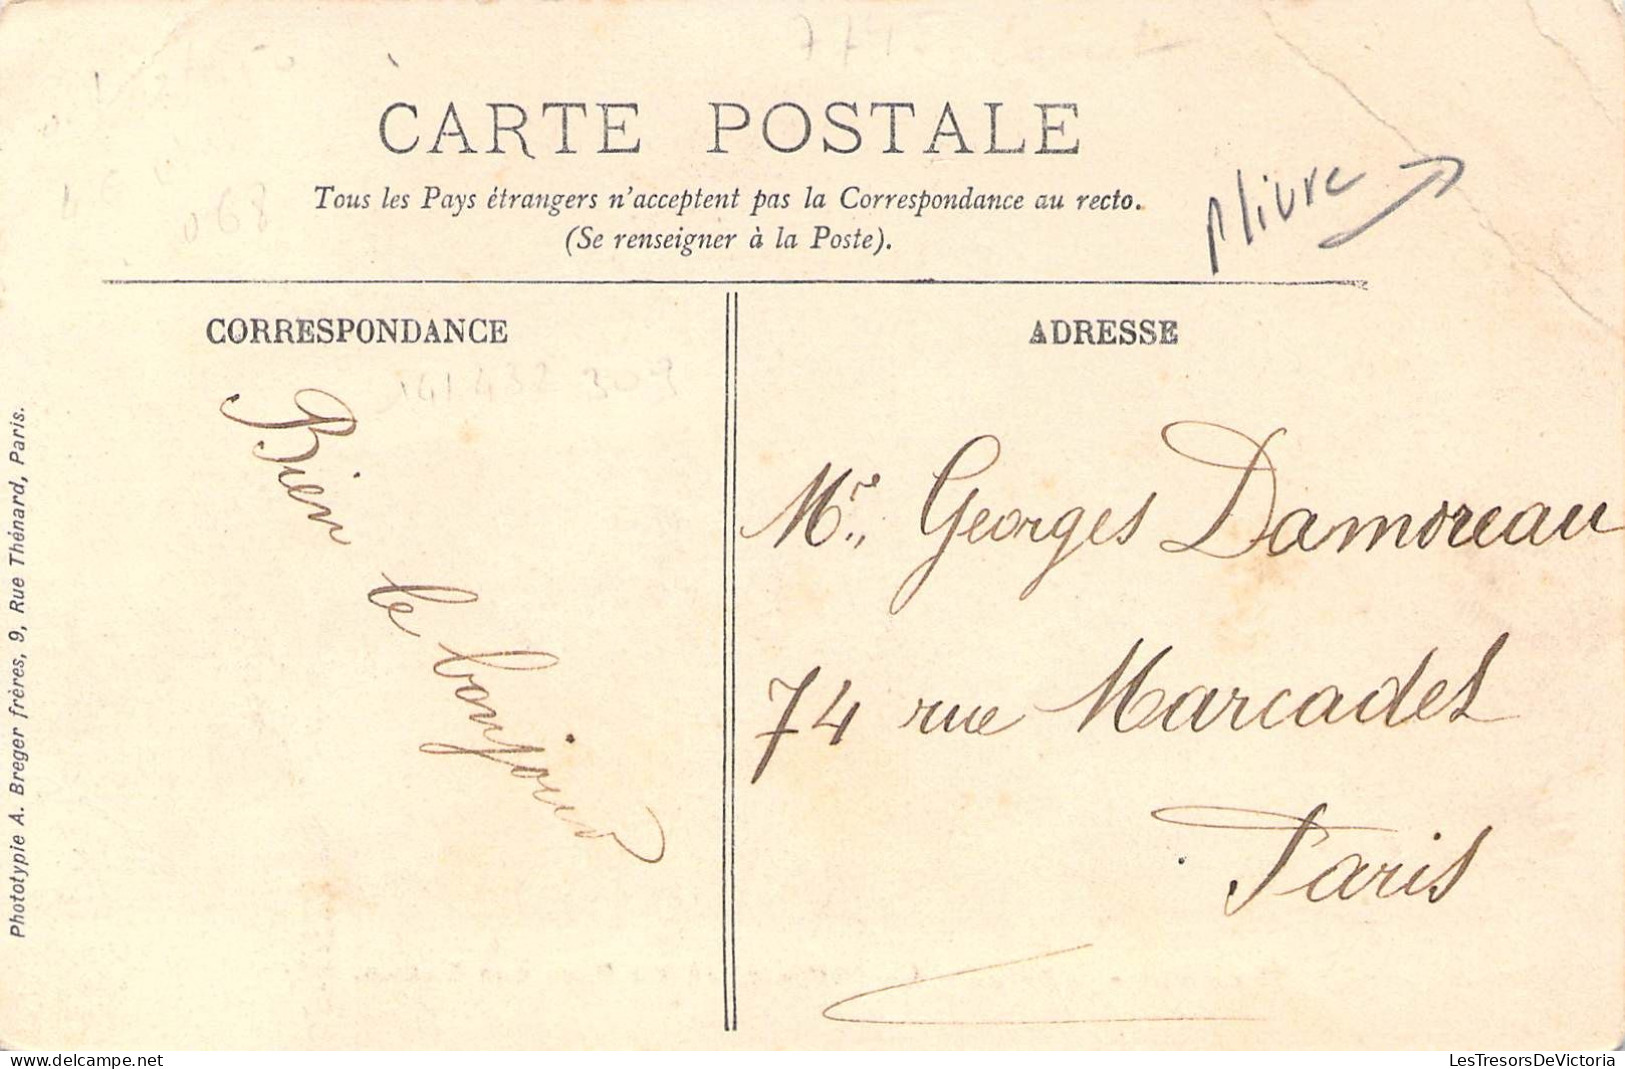 CARTE POSTALE
Tous les Pays étrangers n'acceptent pas la Correspondance au recto.
(Se renseigner à la Poste).
plivre
CORRESPONDANCE
Bien
le bonjour
ADRESSE
Mr,, Georges Damoreau
74 rue Marcadet
Paris
Phototypie A. Breger frères, 9, Rue Thénard, Paris.
068
141 432 309
774
delcampe.net
LesTresorsDeVictoria